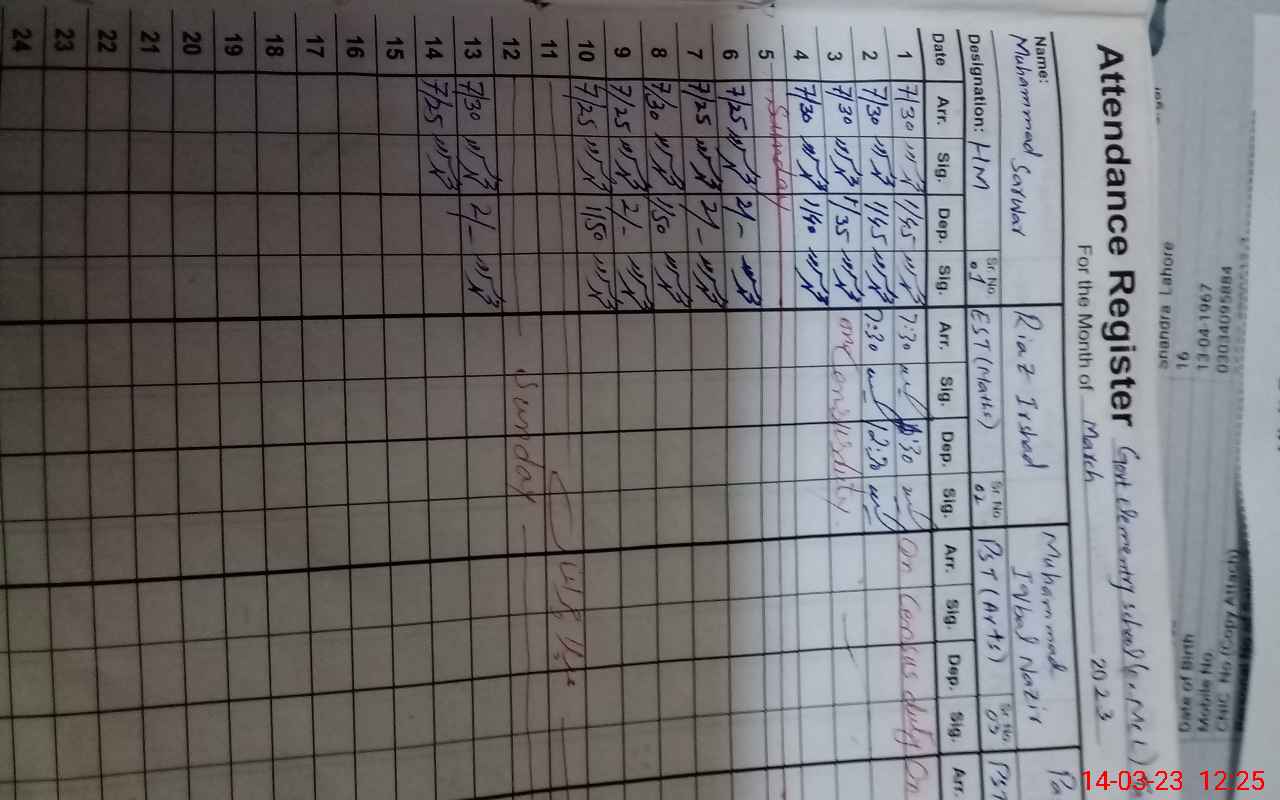 Attendance Register Govt elementry school
For the Month of March 2023
Name: Muhammad Sarwar Riaz Irshad Muhammad Iqbal Nazir Pa
Designation: HM Sr. No. 01 EST (Maths) Sr. No. 02 PST (Arts) Sr. No. 03 PST
Date Arr. Sig. Dep. Sig. Arr. Sig. Dep. Sig. Arr. Sig. Dep. Sig. Arr.
1 7/30 1/45 7:30 :30 On Census duty On
2 7/30 1/45 7:30 12:30
3 7/30 1/35 on Census duty
4 7/30 1/40
5 Sunday
6 7/25 2/-
7 7/25 2/-
8 7/30 1/50
9 7/25 2/-
10 7/25 1/50
11
12 Sunday
13 7/30 2/-
14 7/25
15
16
17
18
19
20
21
22
23
24
Date of Birth 13-04-1967
Mobile No. 03034095884
CNIC No (Copy Attach)
16
Lahore
14-03-23 12:25